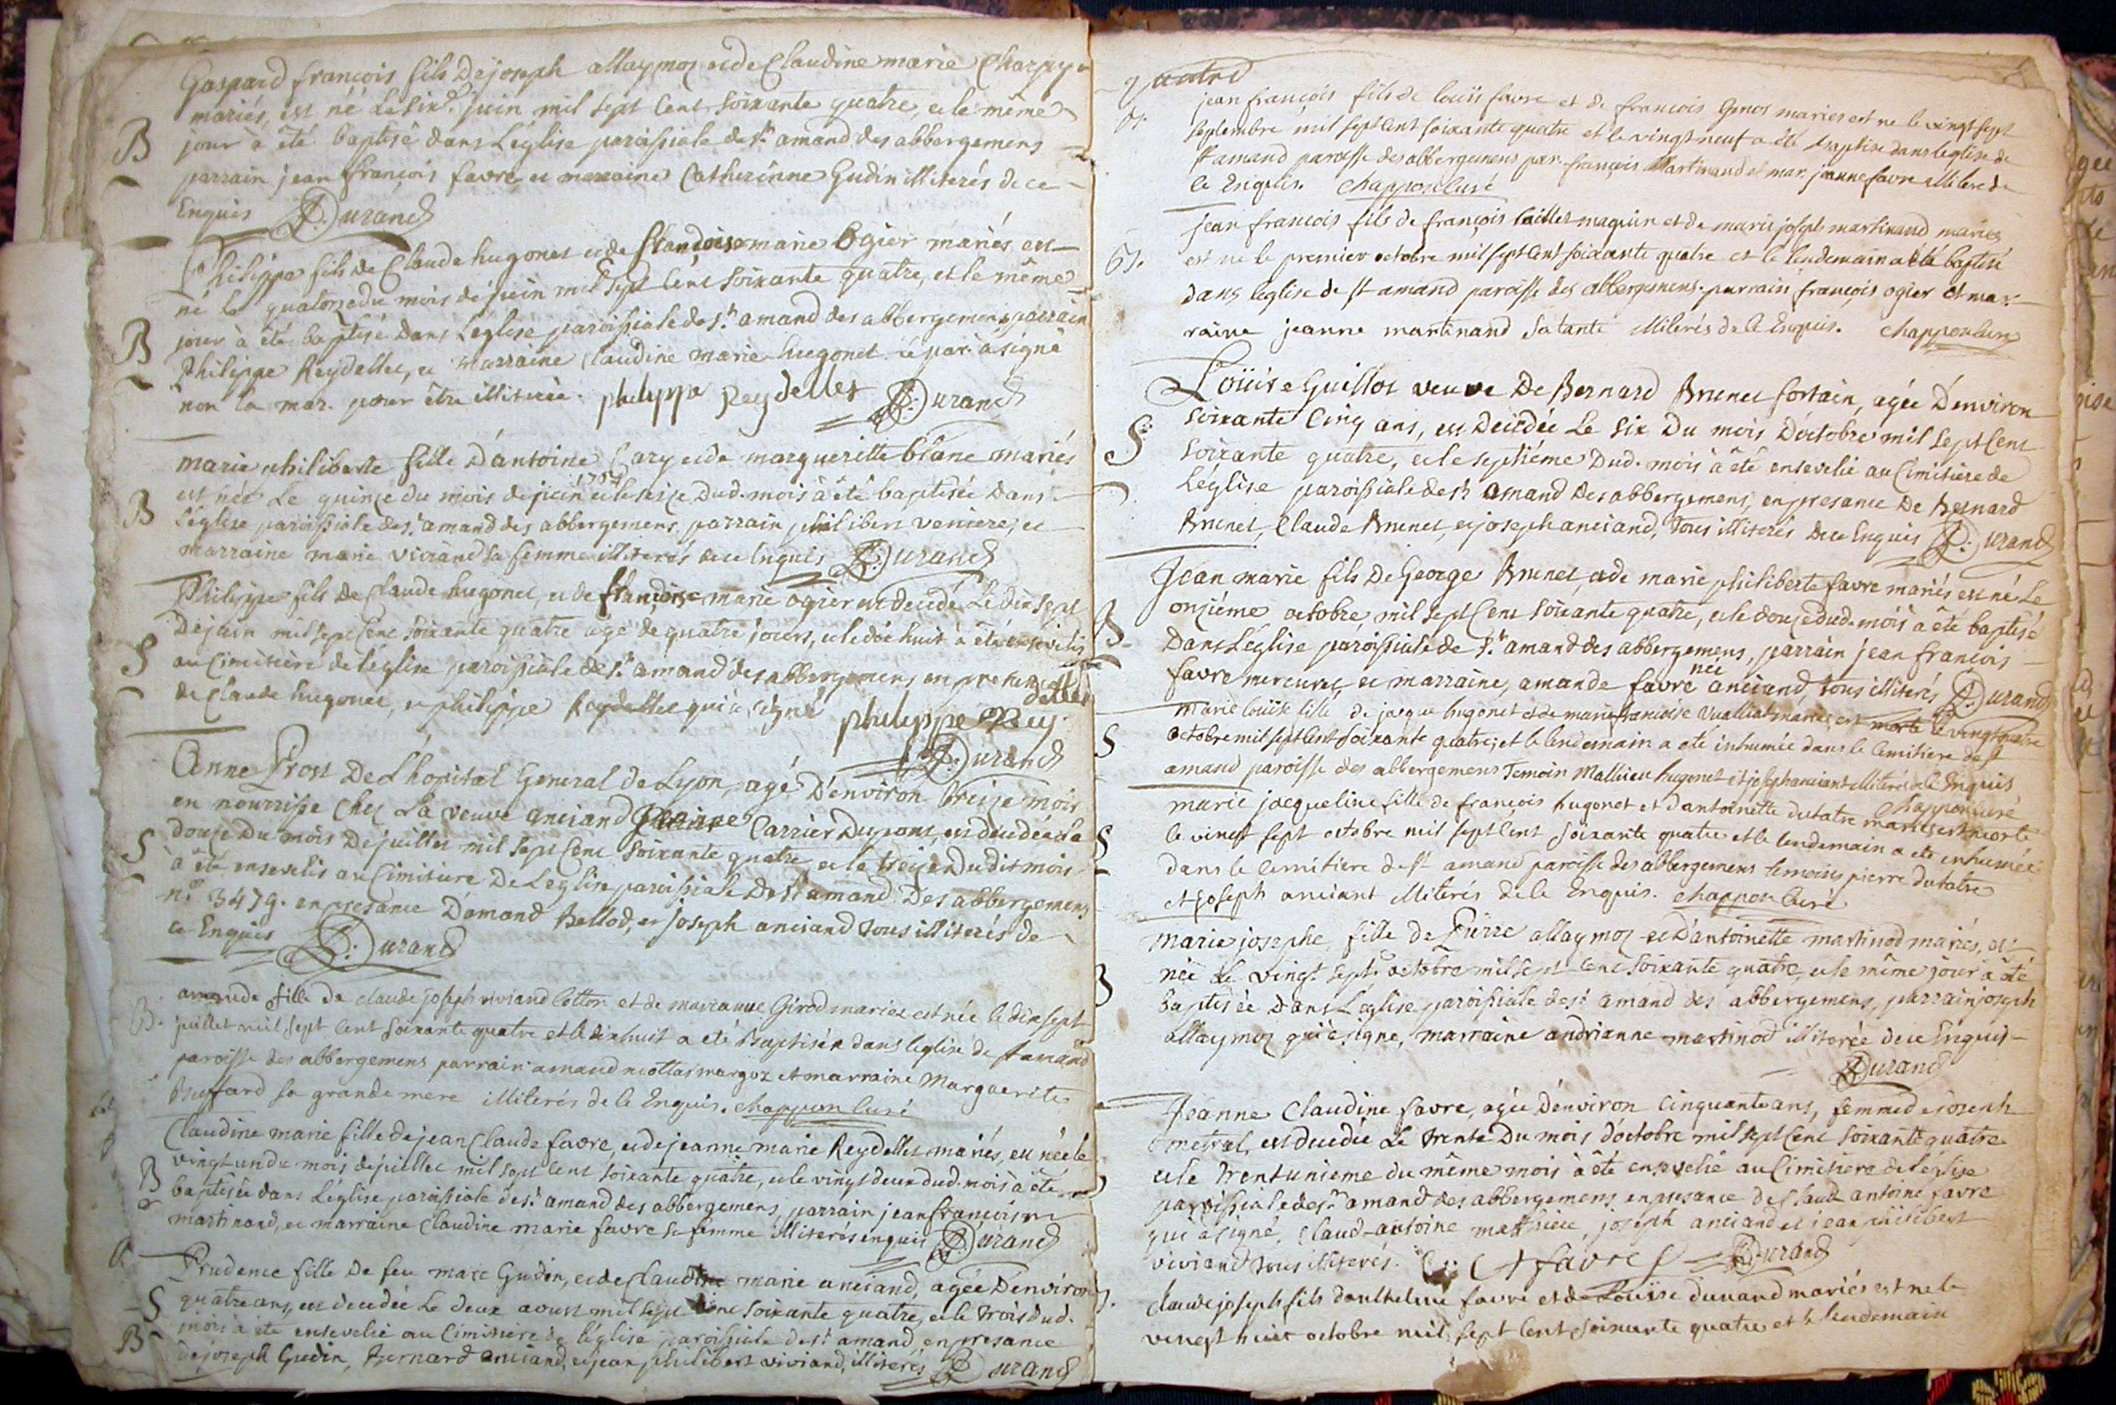 Gaspard françois fils De joseph allaymoz et de Claudine marie Charpy
mariés, est né le six e. juin mil sept Cent soixante quatre, et le même
B jour à été baptisé dans L'église paroissiale de st. amand des abbergemens
parrain jean françois favre et marraine Catherinne Gudin illiterés de ce
Enquis Durand
Philippe fils de Claude hugonet et de françoise marie Ogier mariés, est
né le quatorze du mois de juin mil sept Cent soixante quatre, et le même
B jour à été baptisé dans L'église paroissiale de st. amand des abbergemens parrain
philippe Reydellet, et Marraine Claudine marie hugonet. le par. à signé
non la mar. pour être illiterée. philippe Reydellet Durand
marie philiberte fille D'antoine Cary et de margueritte blanc mariés
est née Le quinze du mois de juin 1764 et le seize Dud. mois à été baptisée Dans
B L'église paroissiale de st. amand des abbergemens, parrain philibert veniere, et
marraine marie viviand sa femme illiterés de ce Enquis Durand
Philippe fils de Claude hugonet, et de françoise marie ogier est decedé Le dix sept
De juin mil sept Cent soixante quatre agé de quatre jours, et le dix huit à été enseveli
S au Cimitière de l'église paroissiale de st. amand des abbergemens en presence
de Claude hugonet, et philippe Reydellet qui à signé philippe Reydellet
Durand
Anne Prost De L'hopital General de Lyon, agé D'environ treize mois
en nourrisse Chez La veuve anciand Jeanne Carrier Dupont, est decedée le
S douze Du mois De juillet mil sept Cent soixante quatre et le treize Dudit mois
à été ensevelis au Cimitiere De L'eglise paroissiale De st. amand Des abbergemens
n.o 3479. en presance D'amand Bellod, et joseph anciand tous illiterés de
ce Enquis Durand
amande fille de claude joseph viviand Cotton et de marianne Girod mariés est née le dix sept
B. juillet mil sept Cent soixante quatre et le dix huit a été Baptisée dans l'eglise de st amand
paroisse des abbergemens parrain amand nicollas margoz et marraine Marguerite
Buffard sa grande mere illiterés de le Enquis. chappon Curé
Claudine marie fille de jean Claude favre, et de jeanne marie Reydellet mariés, est née le
vingt un du mois de juillet mil sept Cent soixante quatre, et le vingt deux dud. mois à été
B baptisée dans L'église paroissiale de st. amand des abbergemens, parrain jean françois
martinand, et marraine Claudine marie favre sa femme illiterés enquis Durand
Prudence fille De feu marc Gudin, et de Claudine marie anciand, agée D'environ
S quatre ans, est decedée Le deux aoust mil sept Cent soixante quatre, et le trois dud.
mois à été ensevelie au Cimitiere de l'église paroissiale de st. amand, en presance
B De joseph Gudin, Bernard anciand, et jean philibert viviand, illiterés Durand
quatre
jean françois fils de louis favre et de françois Genod mariés est ne le vingt sept
B. septembre mil sept Cent soixante quatre et le vingt neuf a été baptise dans l'eglise de
st amand paroisse des abbergemens par. françois Martinand et mar. jeanne favre illiteré de
le Enquis. chappon Curé
jean françois fils de françois Caillet maquin et de marie joseph martinand mariés
B. est né le premier octobre mil sept Cent soixante quatre et le lendemain a été baptisé
dans l'eglise de st amand paroisse des abbergemens. parrain françois ogier et mar-
raine jeanne martinand sa tante illiterés de le Enquis. chappon Curé
Loüise Guillot veuve De Bernard Brunet fortain, agée D'environ
soixante Cinq ans, est Decédée Le six Du mois D'octobre mil sept Cent
S soixante quatre, et le septiéme Dud. mois à été ensevelie au Cimitiere de
L'église paroissiale de st. amand Des abbergemens, en presance De Bernard
Brunet, Claude Brunet, et joseph anciand, tous illiterés De ce Enquis Durand
Jean marie fils De George Brunet, et de marie philiberte favre mariés est né Le
onziéme octobre mil sept Cent soixante quatre, et le douze dud. mois à été baptisé
B Dans L'église paroissiale de st. amand des abbergemens, parrain jean françois
favre mercurez, et marraine, amande favre née anciand, tous illiterés Durand
marie loüise fille de jacque hugonet et de marie françoise vualliat mariés est morte le vingt quatre
S octobre mil sept Cent soixante quatre, et le lendemain a été inhumée dans le Cemitiere de st
amand paroisse des abbergemens Temoin Mathieu hugonet et joseph anciant illiterés de le Enquis
chappon Curé
marie jacqueline fille de françois hugonet et d'antoinette dutatre mariés est morte
S le vingt sept octobre mil sept Cent soixante quatre et le lendemain a été inhumée
dans le Cemitiere de st amand paroisse des abbergemens temoins pierre dutatre
et joseph anciant illiterés de le Enquis. chappon Curé
marie josephe, fille de Pierre allaymoz et D'antoinette martinod mariés, est
née Le vingt sept octobre mil sept Cent soixante quatre, et le même jour à été
B baptisée Dans L'eglise paroissiale de st. amand des abbergemens, parrain joseph
allaymoz qui à signe, marraine andrianne martinod illiterée de ce Enquis
Durand
Jeanne Claudine favre, agée D'environ Cinquante ans, femme de joseph
metral, est decedée Le trente Du mois d'octobre mil sept Cent soixante quatre
et le trent unieme du même mois à été ensevelie au Cimitiere de l'église
paroissiale de st. amand des abbergemens en presance de Claude antoine favre
qui à signé, Claud-antoine mathieu, joseph anciand et jean philibert
viviand tous illiterés. C: A favre Durand
claude joseph fils d'anthelme favre et de Loüise dunand mariés est ne le
vingt huit octobre mil sept Cent soixante quatre et le lendemain